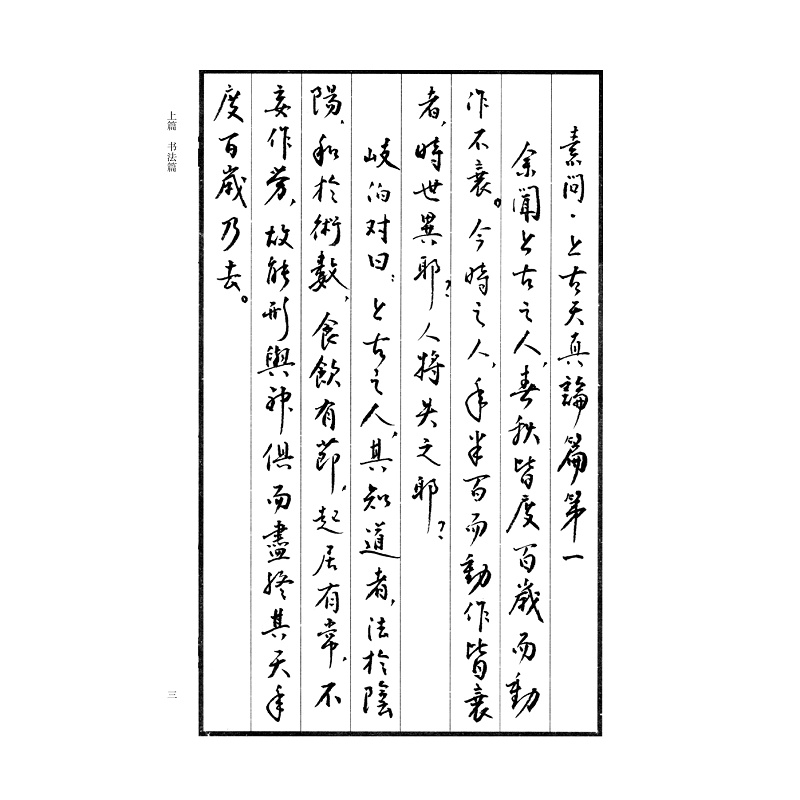 素问·上古天真論篇第一
余聞上古之人，春秋皆度百歲而動
作不衰。今時之人，年半百而動作皆衰
者，時世異耶？人将失之耶？
岐伯对曰：上古之人，其知道者，法於陰
陽，和於術數，食飲有節，起居有常，不
妄作劳，故能形與神俱而盡終其天年
度百歲乃去。
上篇 书法篇
三